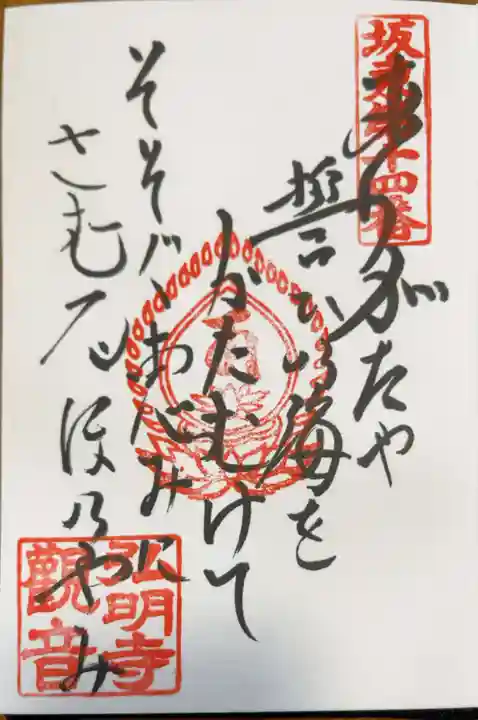 坂東第十四番
ありがたや
誓いの海を
かたむけて
そそぐめぐみに
さむるほのやみ
弘明寺
觀音